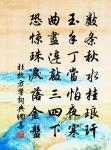 數條秋水挂琅玕
玉手丁當怕夜寒
曲盡連敲三四下
恐驚珠淚落金盤
杜牧方響詩